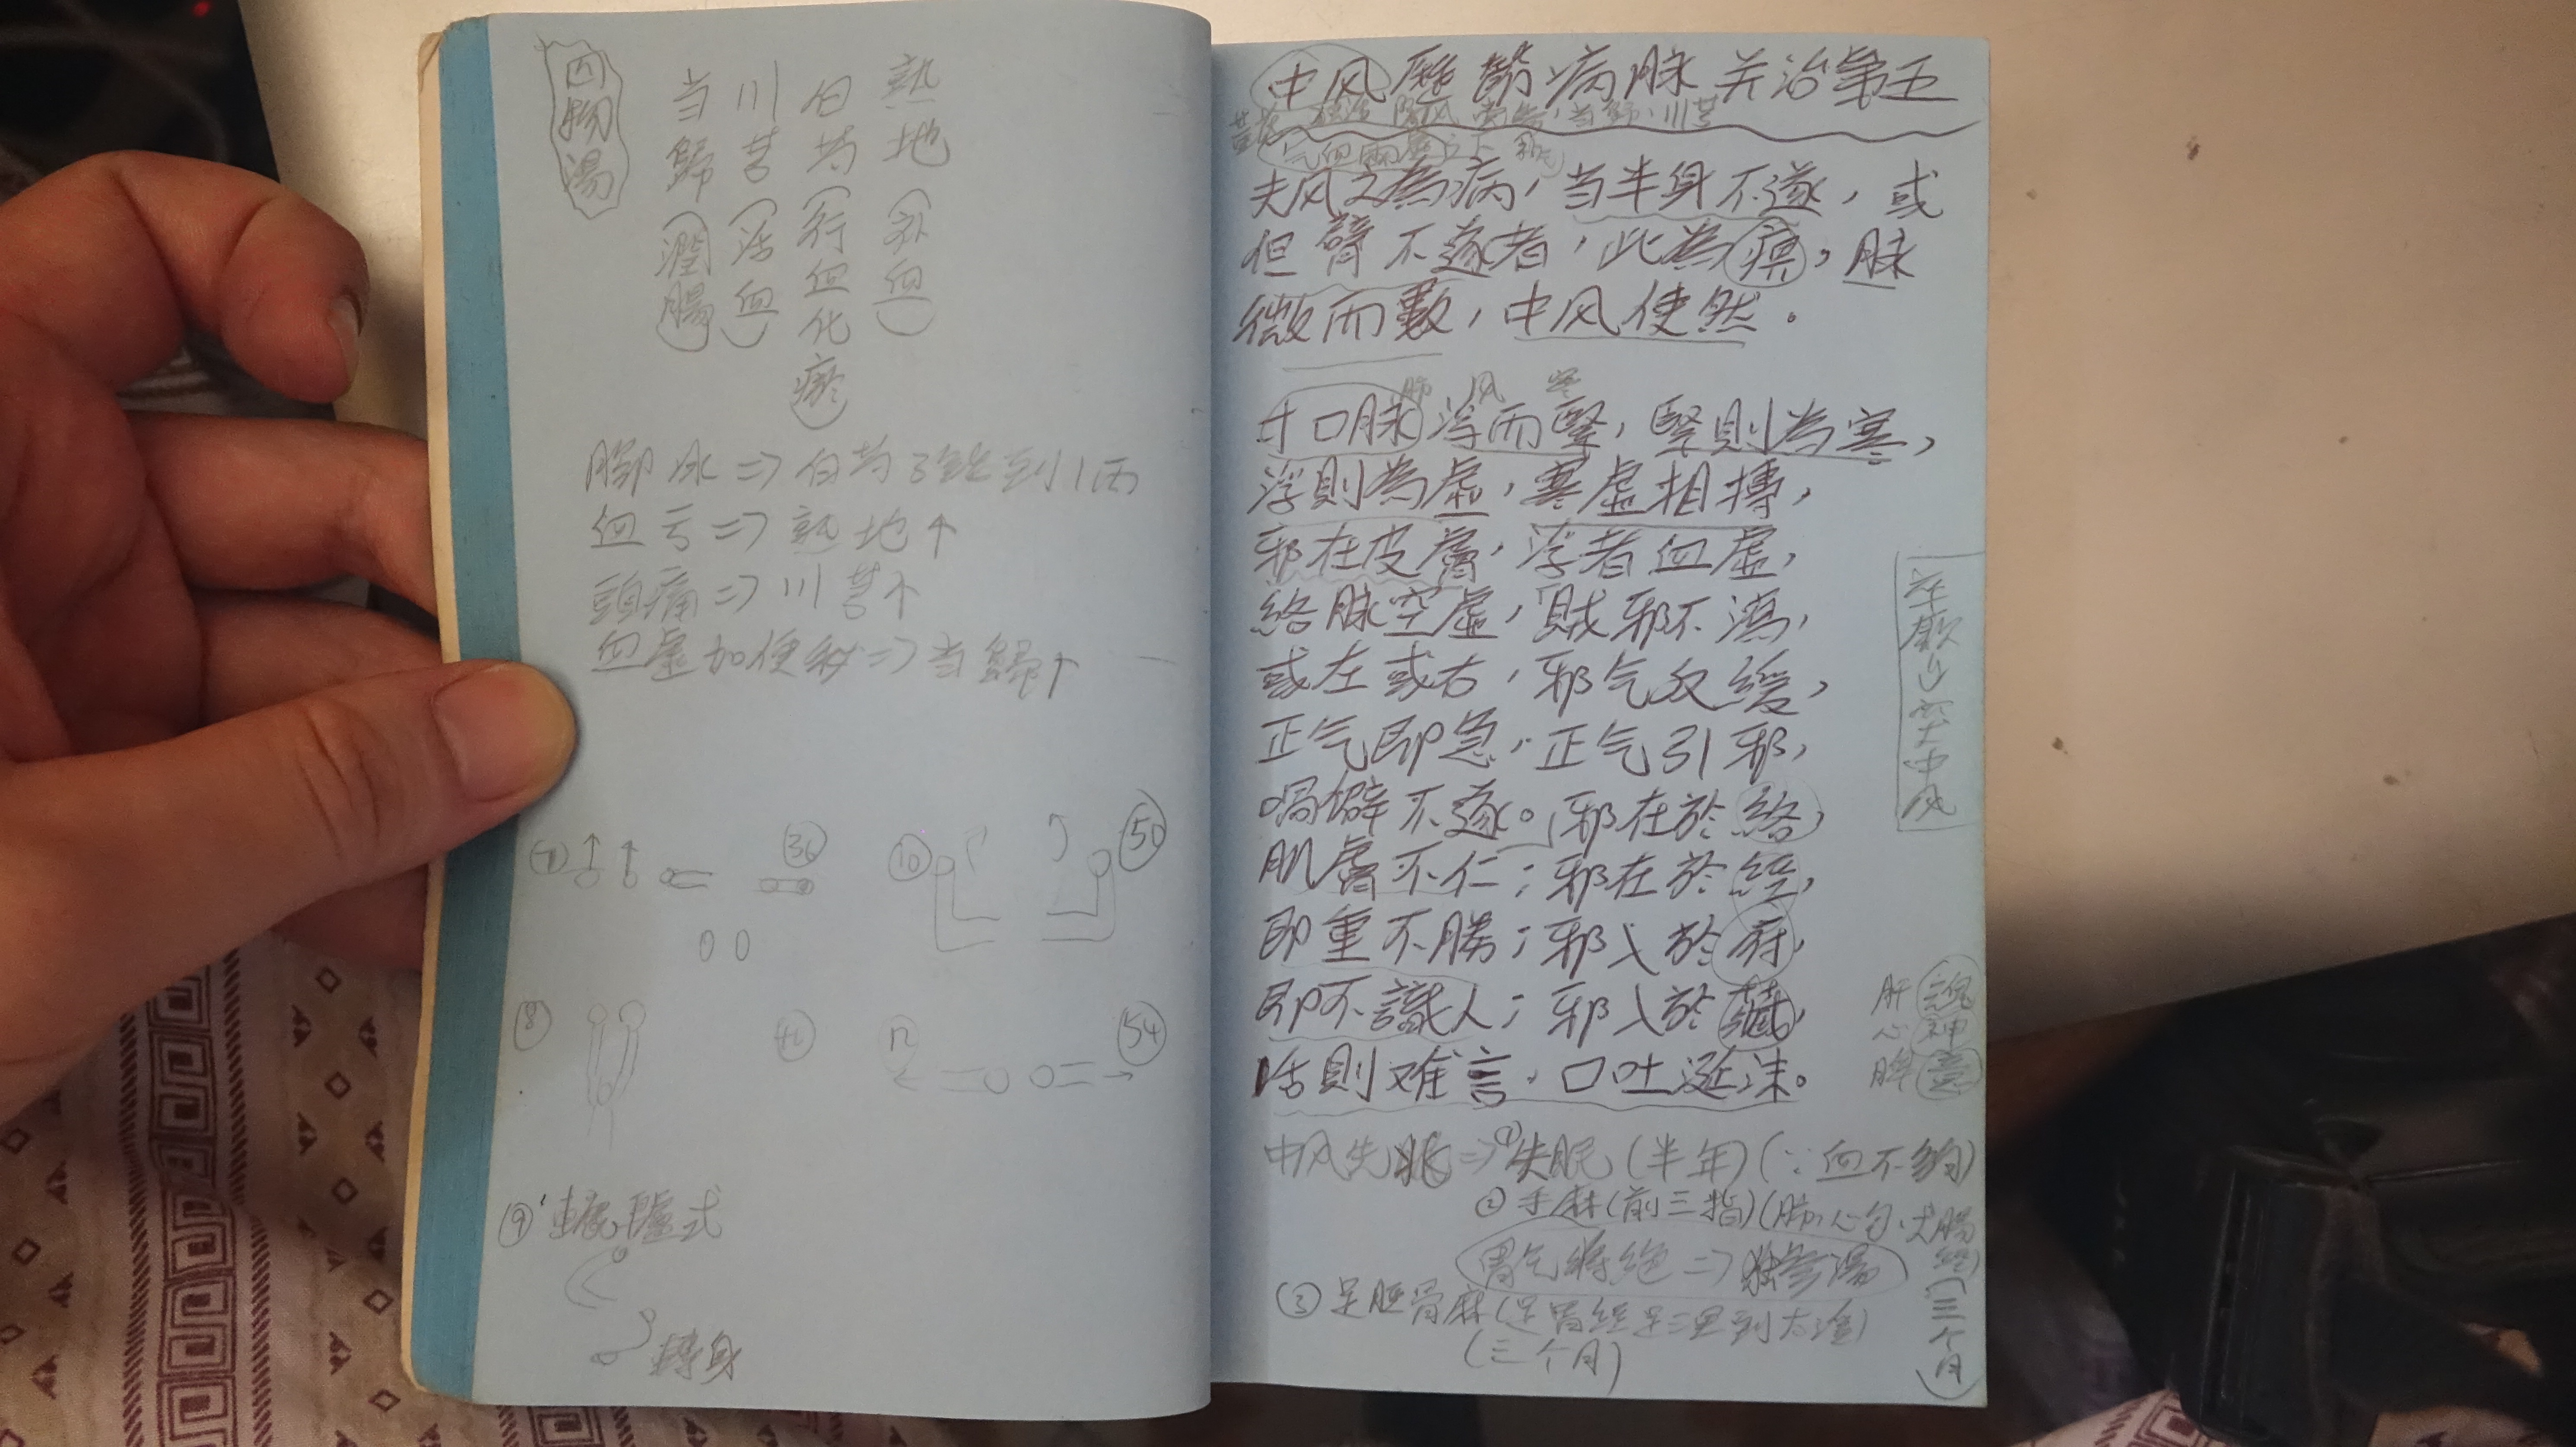 四物湯
当歸(潤腸)
川芎(活血)
白芍(行血化瘀)
熟地(补血)
腳冰⇒白芍3錢到1両
血亏⇒熟地↑
頭痛⇒川芎↑
血虛加便秘⇒当歸↑
⑦
㊱
⑩
㊿
⑧
㊷
12
54
⑨轆轤式
轉身
中风歷節病脉并治第五
黃芪 防风 当歸、川芎
气血兩虛
夫风之為病，当半身不遂，或
但臂不遂者，此為痹，脉
微而數，中风使然。
肺 风 寒
寸口脉浮而緊，緊則為寒，
浮則為虛，寒虛相搏，
邪在皮膚，浮者血虛，
絡脉空虛，賊邪不瀉，
或左或右，邪气反緩，
正气即急，正气引邪，
喎僻不遂。邪在於絡，
肌膚不仁；邪在於經，
即重不勝；邪入於府，
即不識人；邪入於藏，
舌則难言，口吐涎沫。
肝 魂
心 神
脾 意
中风先兆⇒①失眠(半年)(∵血不夠)
②手麻(前三指)(肺、心包、大腸經)(三个月)
胃气將絕⇒独参湯
③足脛骨麻(足胃經足三里到
(三个月)